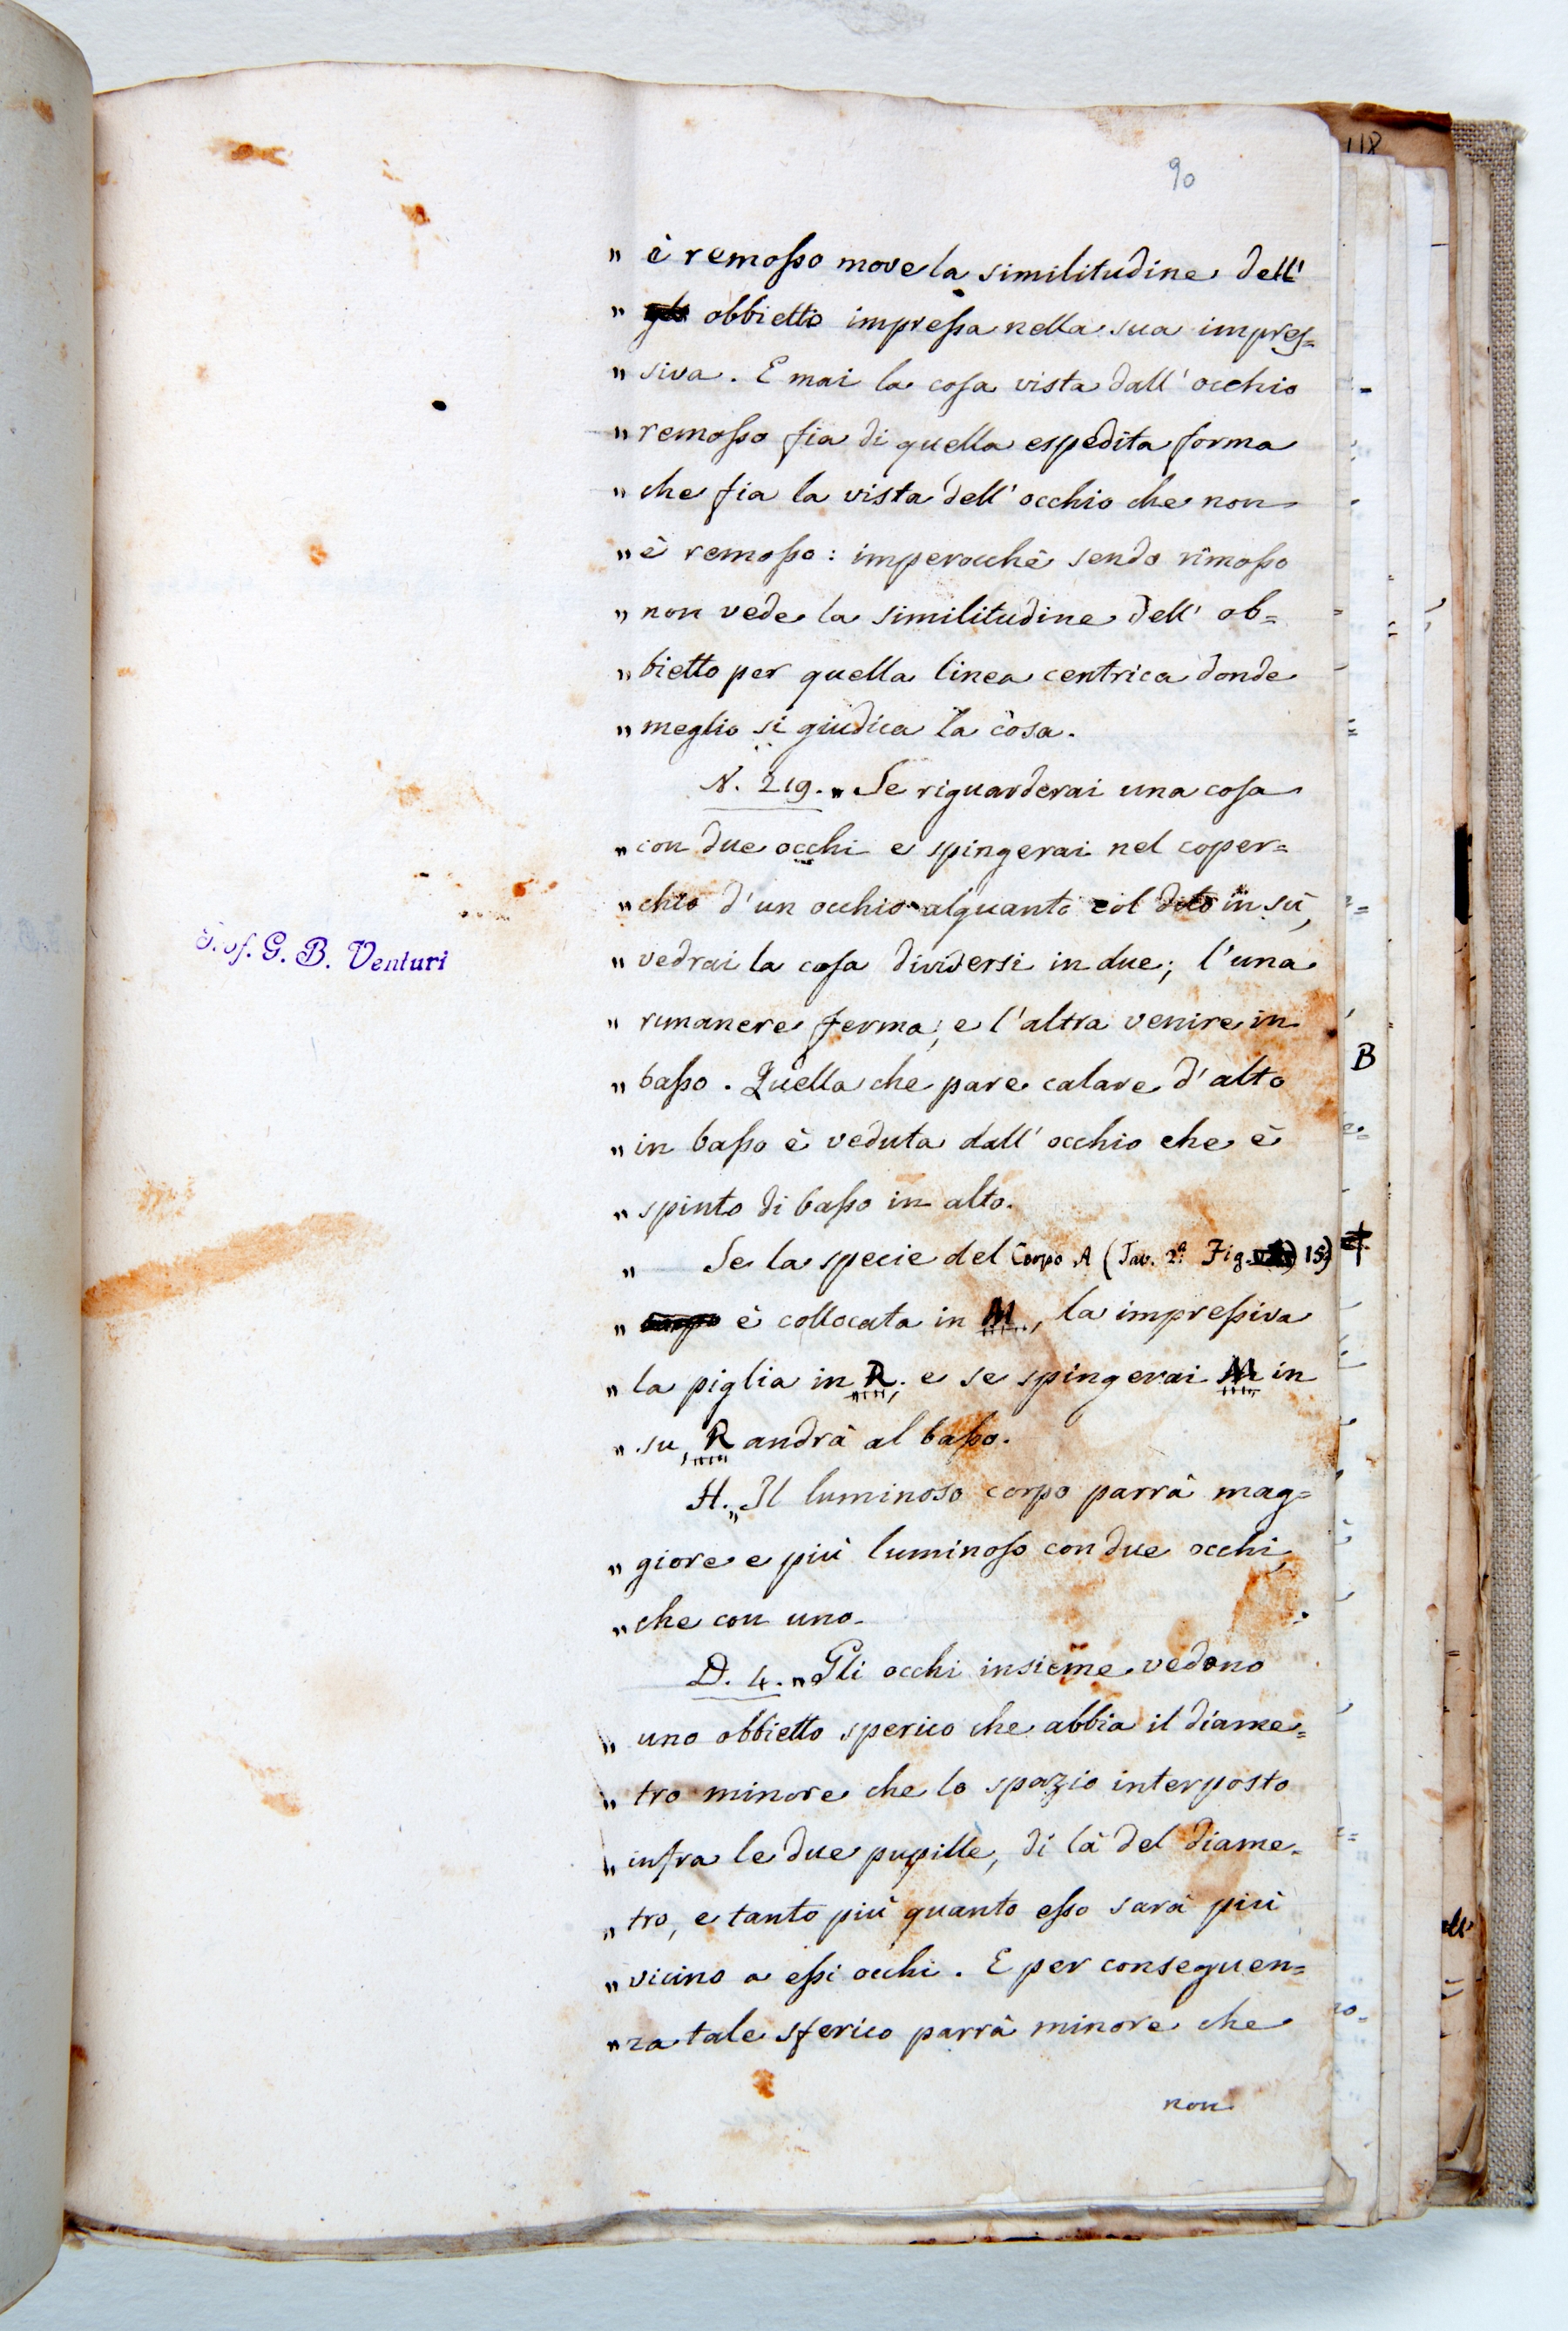 118
90
" è remosso move la similitudine dell'
" obbietto impressa nella sua impres=
" siva. E mai la cosa vista dall' occhio
" remosso fia di quella espedita forma
" che fia la vista dell' occhio che non
" è remosso: imperocchè sendo rimosso
" non vede la similitudine dell' ob=
" bietto per quella linea centrica donde
" meglio si giudica la cosa.
N. 219. " Se riguarderai una cosa
" con due occhi e spingerai nel coper=
" chio d'un occhio alquanto col dito in sù,
" vedrai la cosa dividersi in due; l'una
Prof. G. B. Venturi
" rimanere ferma, e l'altra venire in
" basso. Quella che pare calare d'alto
B
" in basso è veduta dall' occhio che è
" spinto di basso in alto.
" Se la specie del Corpo A (Tav. 2ª Fig. 15)
" è collocata in M, la impressiva
" la piglia in R; e se spingerai M in
" su, R andrà al basso.
H. " Il luminoso corpo parrà mag=
" giore e più luminoso con due occhi,
" che con uno.
D. 4. " Gli occhi insieme vedono
" uno obbietto sperico che abbia il diame=
" tro minore che lo spazio interposto
" infra le due pupille, di là del diame=
" tro, e tanto più quanto esso sarà più
" vicino a essi occhi. E per conseguen=
" za tale sferico parrà minore che
non